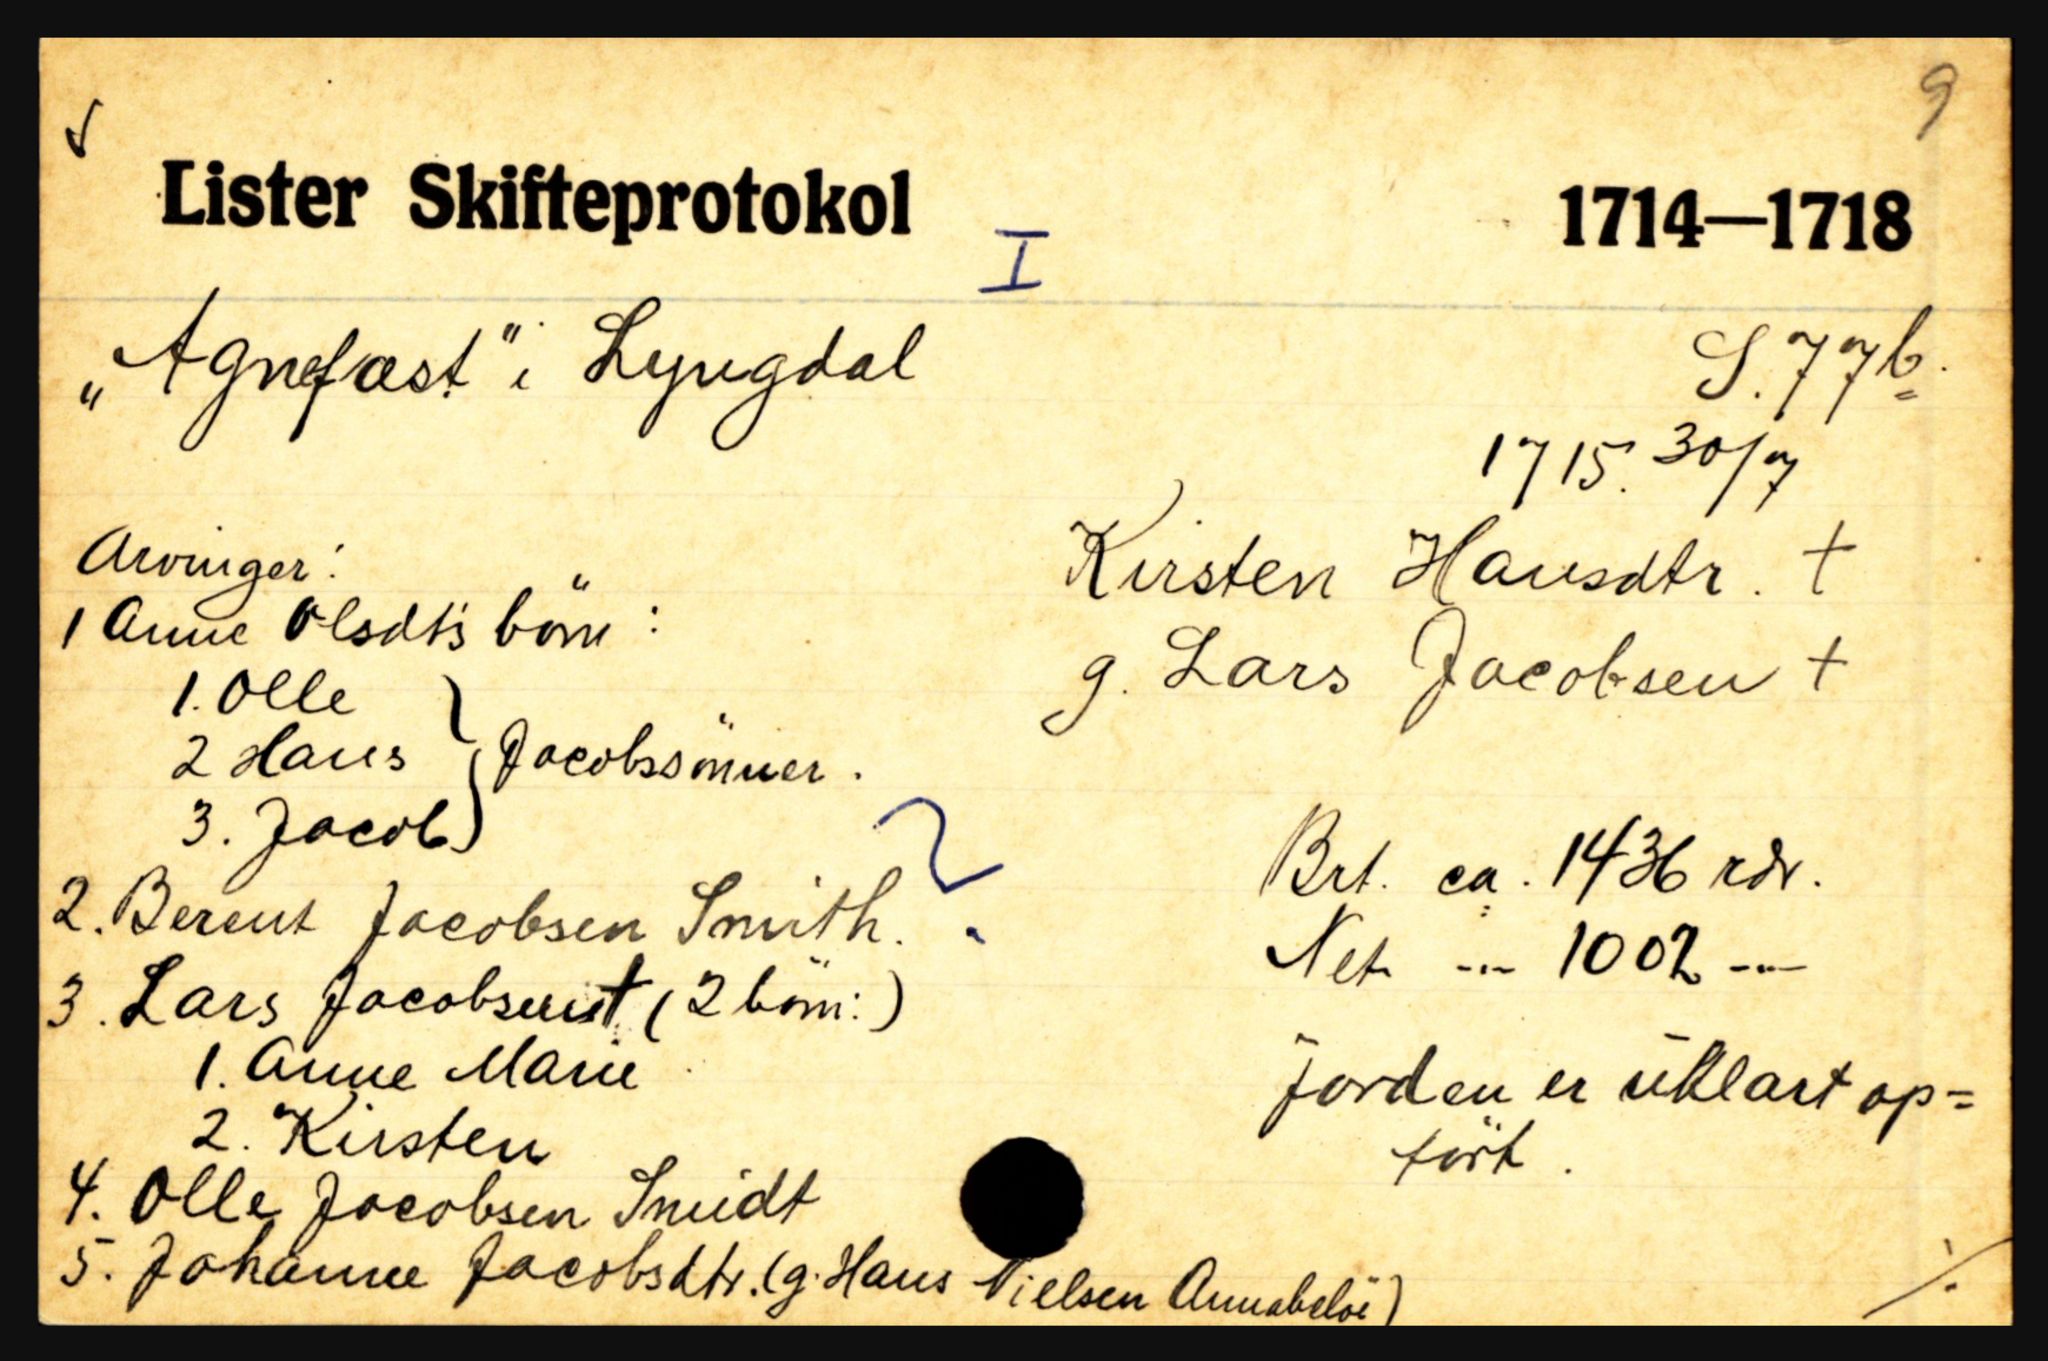 9
Lister Skifteprotokol 1714—1718
I
„Agnefæst" i Lyngdal
S. 77b.
1715. 30/7
Kirsten Hansdtr. +
g. Lars Jacobsen +
Brt. ca. 1436 rdr.
Net -"- 1002 -"-
Jorden er uklart op=
fört.
Arvinger:
1 Anne Olsdt's börn:
1. Olle
2 Hans } Jacobssönner.
3. Jacob
2. Berent Jacobsen Smith. ?
3. Lars Jacobsen + (2 börn:)
1. Anne Marie
2. Kirsten
4. Olle Jacobsen Smidt
5. Johanne Jacobsdtr. (g. Hans Nielsen Annabelöe)
./.